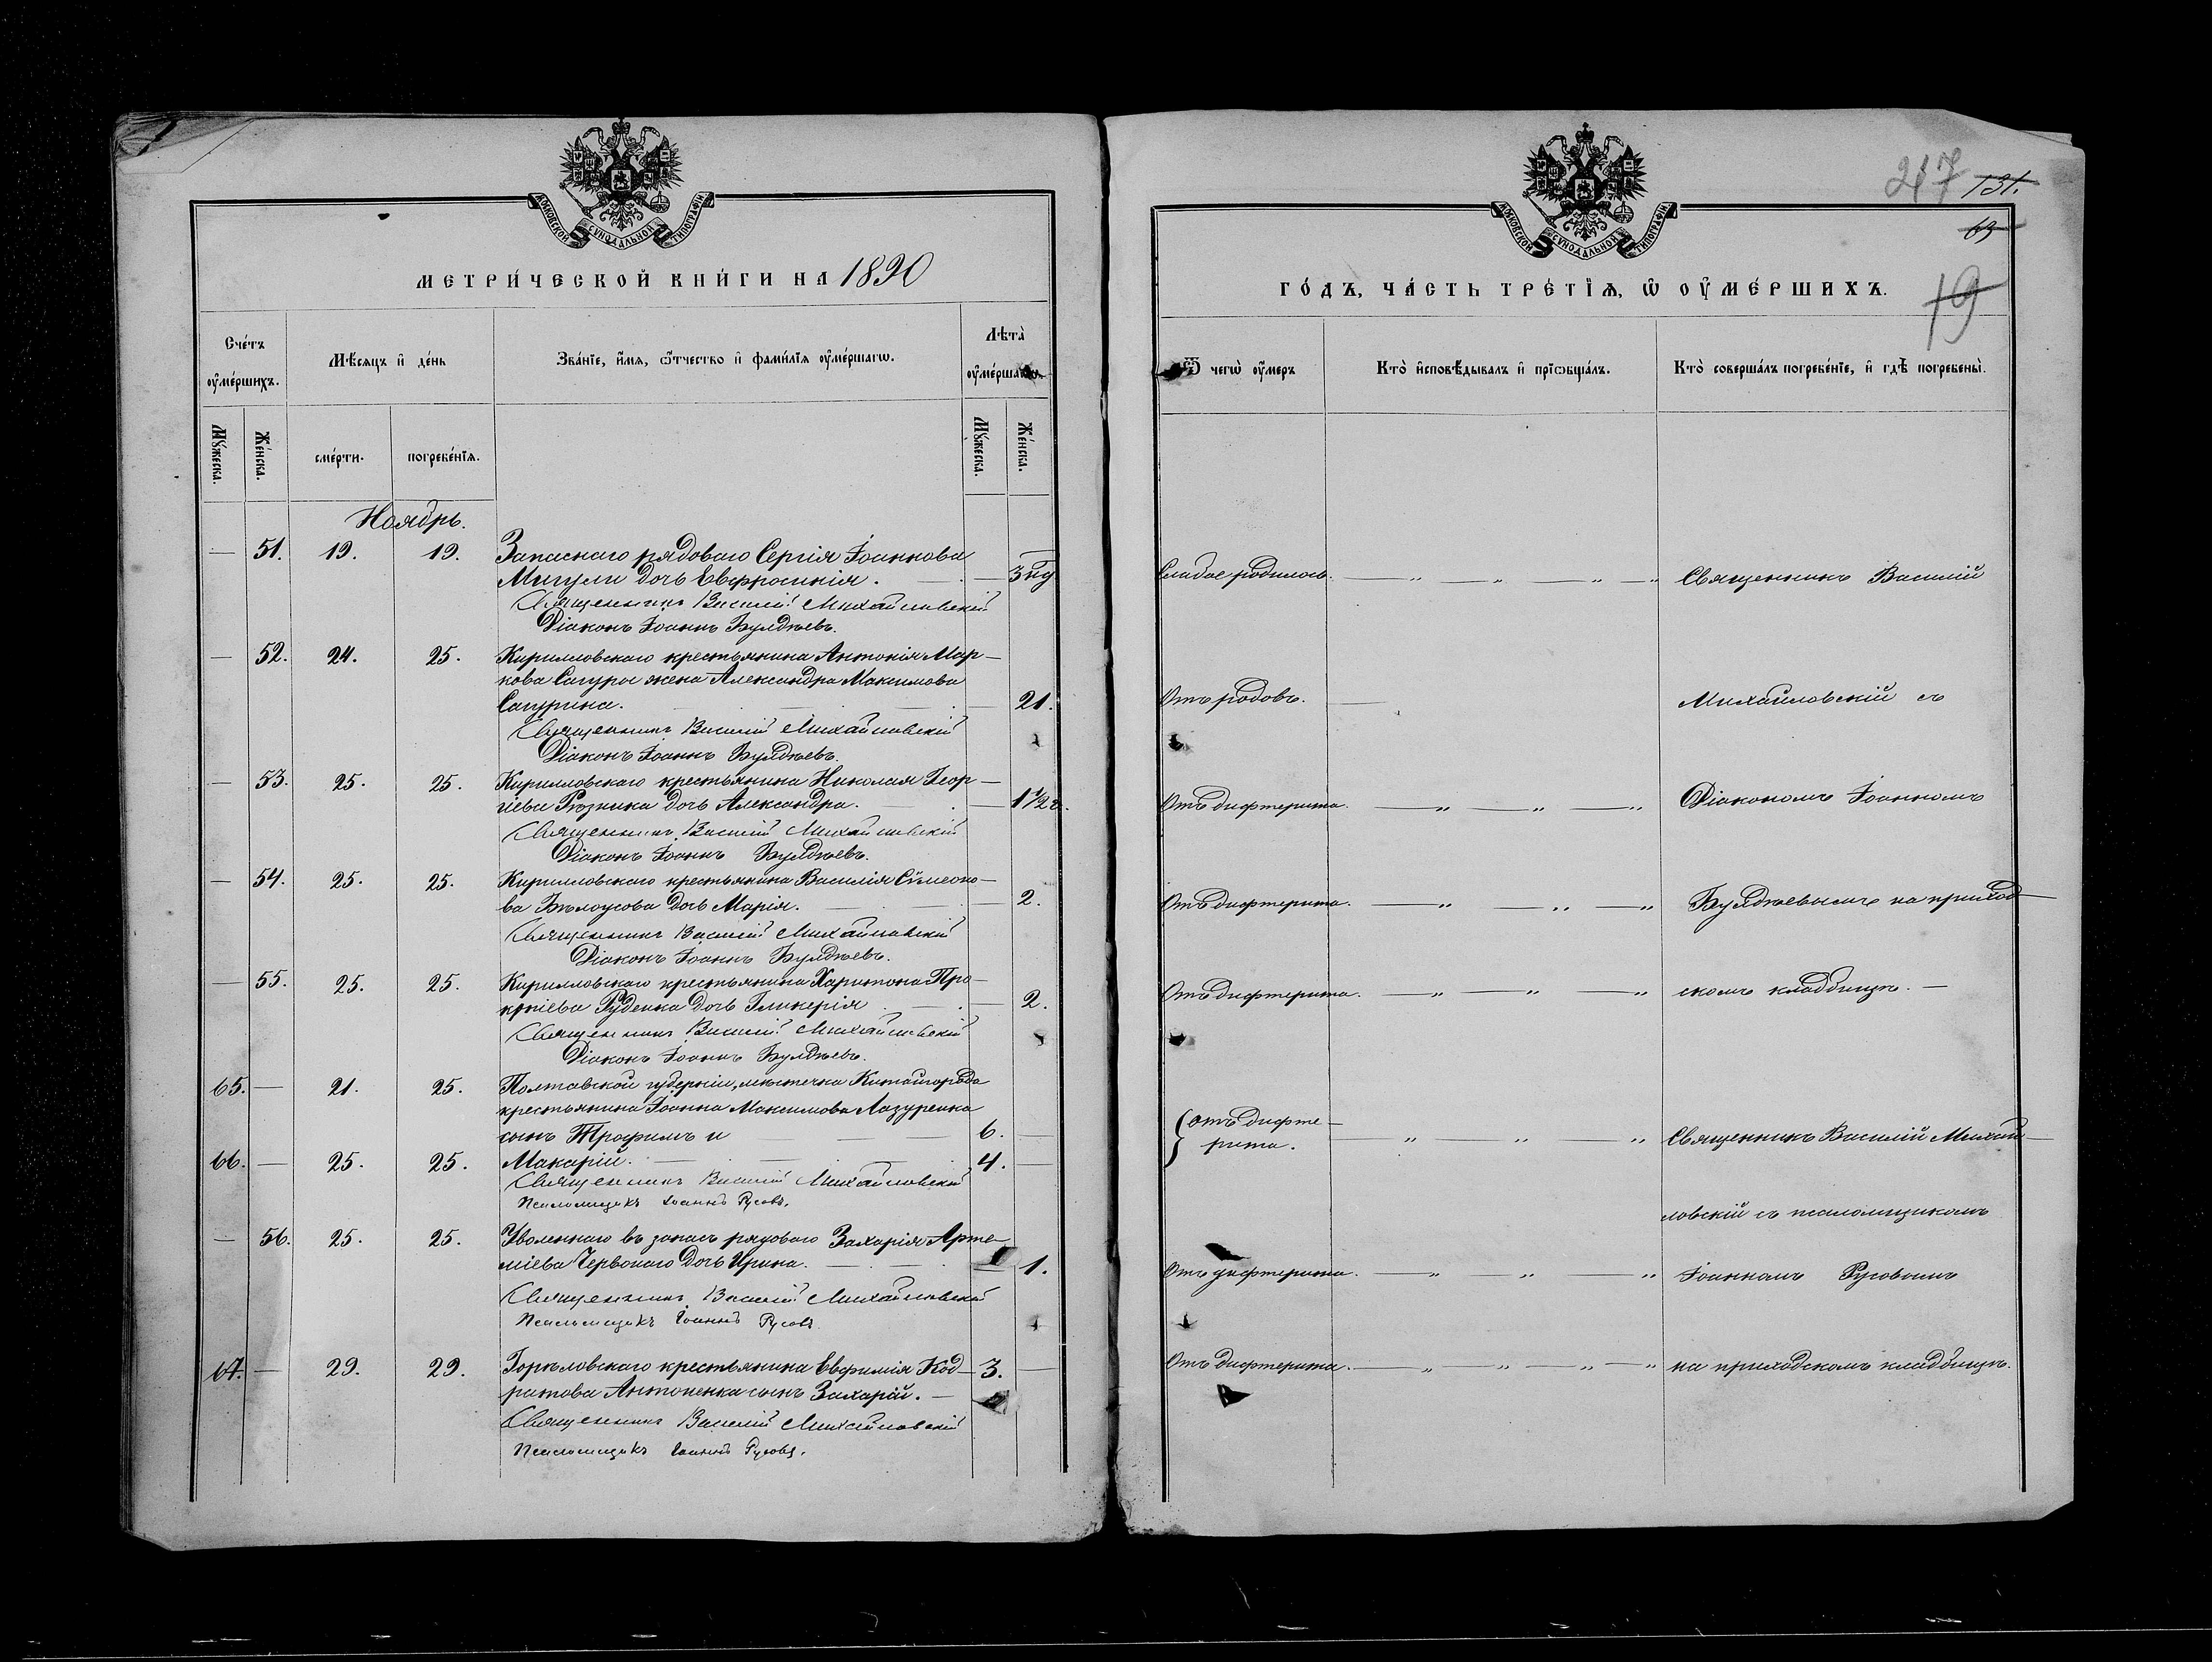 МОСКОВСКОЙ СѴНОДАЛЬНОЙ ТИПОГРАФІИ
МЕТРИ́ЧЕСКОЙ КНИ́ГИ НА 1890
Сче́тъ ᲂу҆ме́ршихъ.
Мѣ́сяцъ и҆ де́нь
Зва́нїе, и҆́мя, ѻ҆́тчество и҆ фами́лїя ᲂу҆ме́ршагѡ.
Лѣта̀ ᲂу҆ме́ршагѡ.
Мꙋ́жеска.
Же́нска.
сме́рти.
погребе́нїѧ.
Мꙋ́жеска.
Же́нска.
Ноябрь.
— 51. 19. 19. Запаснаго рядоваго Сергія Іоаннова
Мигули дочь Евфросинія. — 3 нд
Священникъ Василій Михайловскій
Діаконъ Іоаннъ Булдѣевъ.
— 52. 24. 25. Кирилловскаго крестьянина Антонія Мар-
кова Сагуры жена Александра Максимова
Сагурина. 21.
Священникъ Василій Михайловскій
Діаконъ Іоаннъ Булдѣевъ.
— 53. 25. 25. Кирилловскаго крестьянина Николая Геор-
гіева Рѣзника дочь Александра. — 1½ г.
Священникъ Василій Михайловскій
Діаконъ Іоаннъ Булдѣевъ.
— 54. 25. 25. Кирилловскаго крестьянина Василія Сѵмеоно-
ва Бѣлоусова дочь Марія. — 2.
Священникъ Василій Михайловскій
Діаконъ Іоаннъ Булдѣевъ.
— 55. 25. 25. Кирилловскаго крестьянина Харитона Про-
копіева Руденка дочь Гликерія — 2.
Священникъ Василій Михайловскій
Діаконъ Іоаннъ Булдѣевъ.
65. — 21. 25. Полтавской губерніи, мѣстечка Китайгорода
крестьянина Іоанна Максимова Лазуренка
сынъ Трофимъ и 6. —
66. — 25. 25. Макарій. 4. —
Священникъ Василій Михайловскій
Псаломщикъ Іоаннъ Русовъ.
— 56. 25. 25. Уволеннаго въ запасъ рядоваго Захарія Арте-
міева Червонаго дочь Ирина. — 1.
Священникъ Василій Михайловскій
Псаломщикъ Іоаннъ Русовъ
67. — 29. 29. Горѣловскаго крестьянина Евфимія Код- 3. —
ратова Антоненка сынъ Захарій. —
Священникъ Василій Михайловскій
Псаломщикъ Іоаннъ Русовъ.
217 131.
63
19
МОСКОВСКОЙ СѴНОДАЛЬНОЙ ТИПОГРАФІИ
ГО́ДЪ, ЧА́СТЬ ТРЕ́ТЇѦ, Ѡ҆ ОУ҆МЕ́РШИХЪ.
Ѿ чегѡ̀ ᲂу҆́меръ
Кто̀ и҆сповѣ́дывалъ и҆ прїѡбща́лъ.
Кто̀ соверша́лъ погребе́нїе, и҆ гдѣ̀ погребены̀.
Слабое родилось. — „ — „ — „ — „ Священникъ Василій
Отъ родовъ. — Михайловскій съ
Отъ дифтерита. — „ — „ — „ Діакономъ Іоанномъ
Отъ дифтерита. — „ — „ — „ Булдѣевымъ на приход-
Отъ дифтерита. — „ — „ — „ скомъ кладбищѣ. —
отъ дифте-
рита. „ „ „ Священникъ Василій Михай-
ловскій съ псаломщикомъ
Отъ дифтерита. — „ — „ — „ Іоанномъ Русовымъ
Отъ дифтерита. — „ — „ — „ — „ на приходскомъ кладбищѣ.